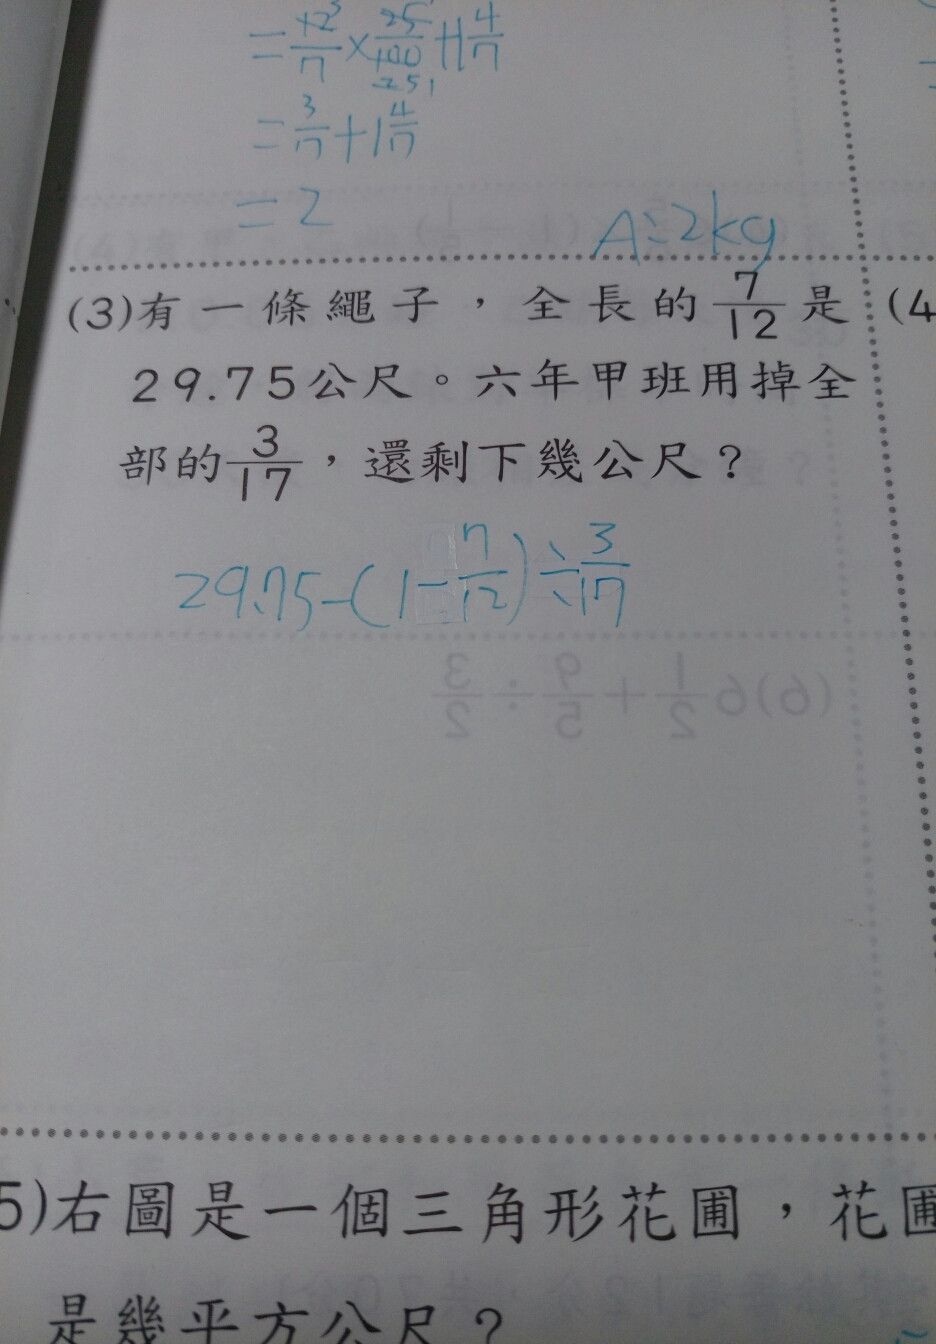 = 12/7 × 25/100 + 1 4/7
= 3/7 + 1 4/7
= 2
A:2kg
(3)有一條繩子，全長的 7/12 是
29.75公尺。六年甲班用掉全
部的 3/17，還剩下幾公尺？
29.75-(1-7/12)÷3/17
(4
5)右圖是一個三角形花圃，花圃
是幾平方公尺？